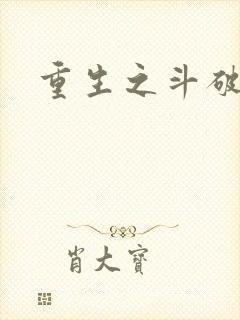 重生之斗破
肖大宝